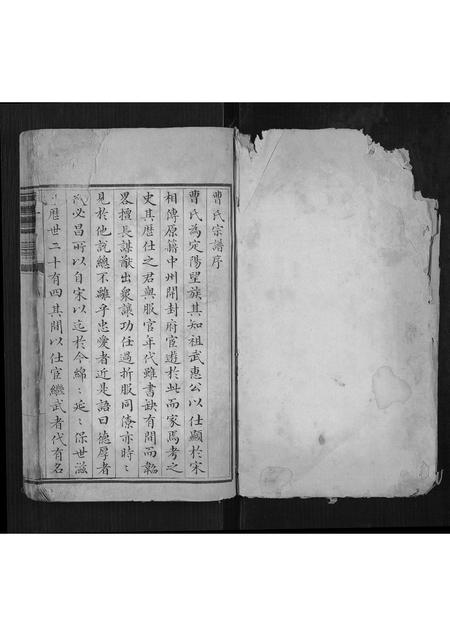 曹氏宗譜序
曹氏為定陽望族其知祖武惠公以仕顯於宋
相傳原籍中州開封府宦遊於此而家焉考之
史其歷仕之君與服官年代雖書缺有間而韜
畧擅長謀猷出衆讓功任過折服同僚亦時〻
見於他說總不離乎忠愛者近是語曰德厚者
必昌所以自宋以迄於今綿〻延〻保世滋
歷世二十有四其間以仕宦繼武者代有名